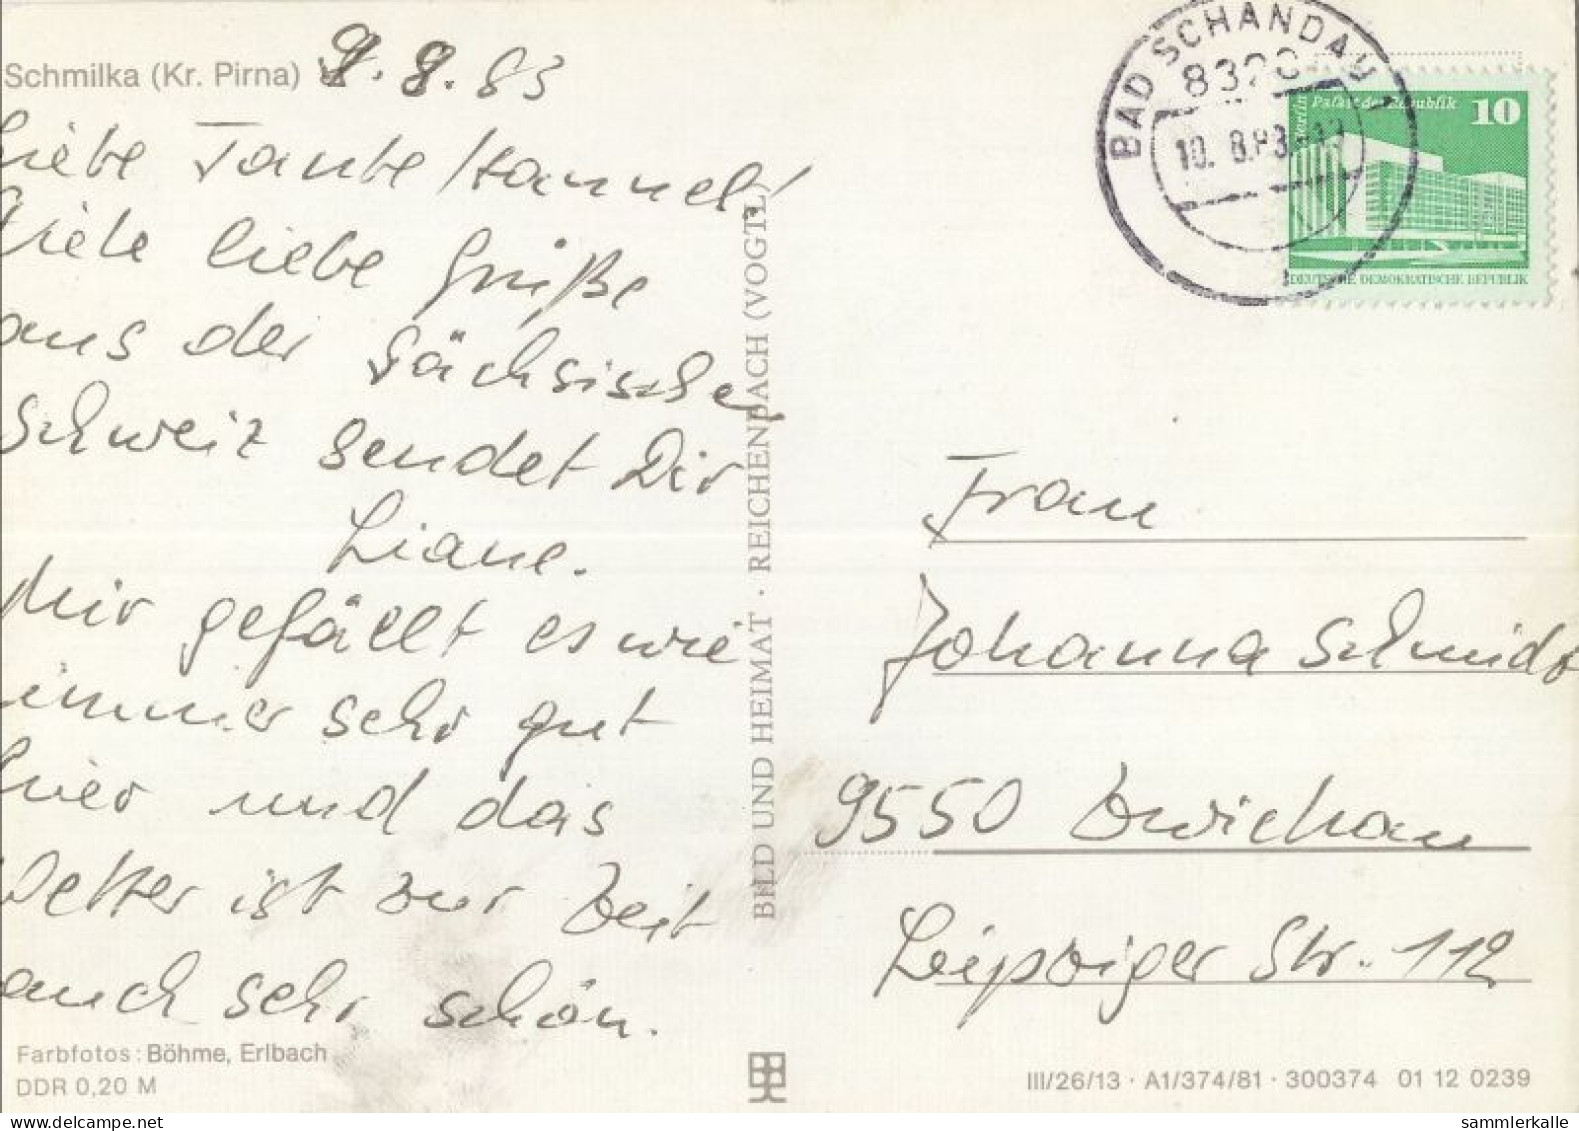 Schmilka (Kr. Pirna) 9.8.83
Liebe Tante Hannel!
Viele liebe Grüße
aus der Sächsischen
Schweiz sendet Dir
Liane.
Mir gefällt es wie
immer sehr gut
hier und das
Wetter ist zur Zeit
auch sehr schön.
Farbfotos: Böhme, Erlbach
DDR 0,20 M
BILD UND HEIMAT · REICHENBACH (VOGTL)
BAD SCHANDAU 1
8320
10. 8.83
Berlin Palast der Republik 10
DEUTSCHE DEMOKRATISCHE REPUBLIK
Frau
Johanna Schmidt
9550 Zwickau
Leipziger Str. 112
III/26/13 · A1/374/81 · 300374 01 12 0239
sammlerkalle